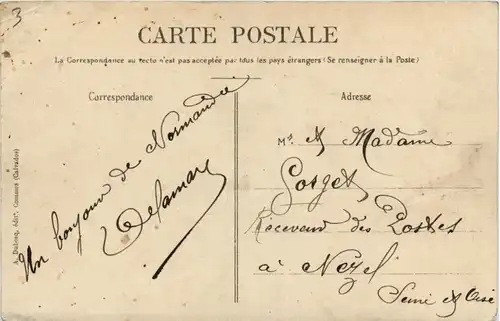 3
CARTE POSTALE
La Correspondance au recto n'est pas acceptée par tous les pays étrangers (Se renseigner à la Poste)
Correspondance
Un bonjour de Normandie
Delamare
A. Dubosq, édit., Conneux (Calvados)
Adresse
Mr & Madame
Gorget
Receveur des Postes
à Nézel
Seine & Oise